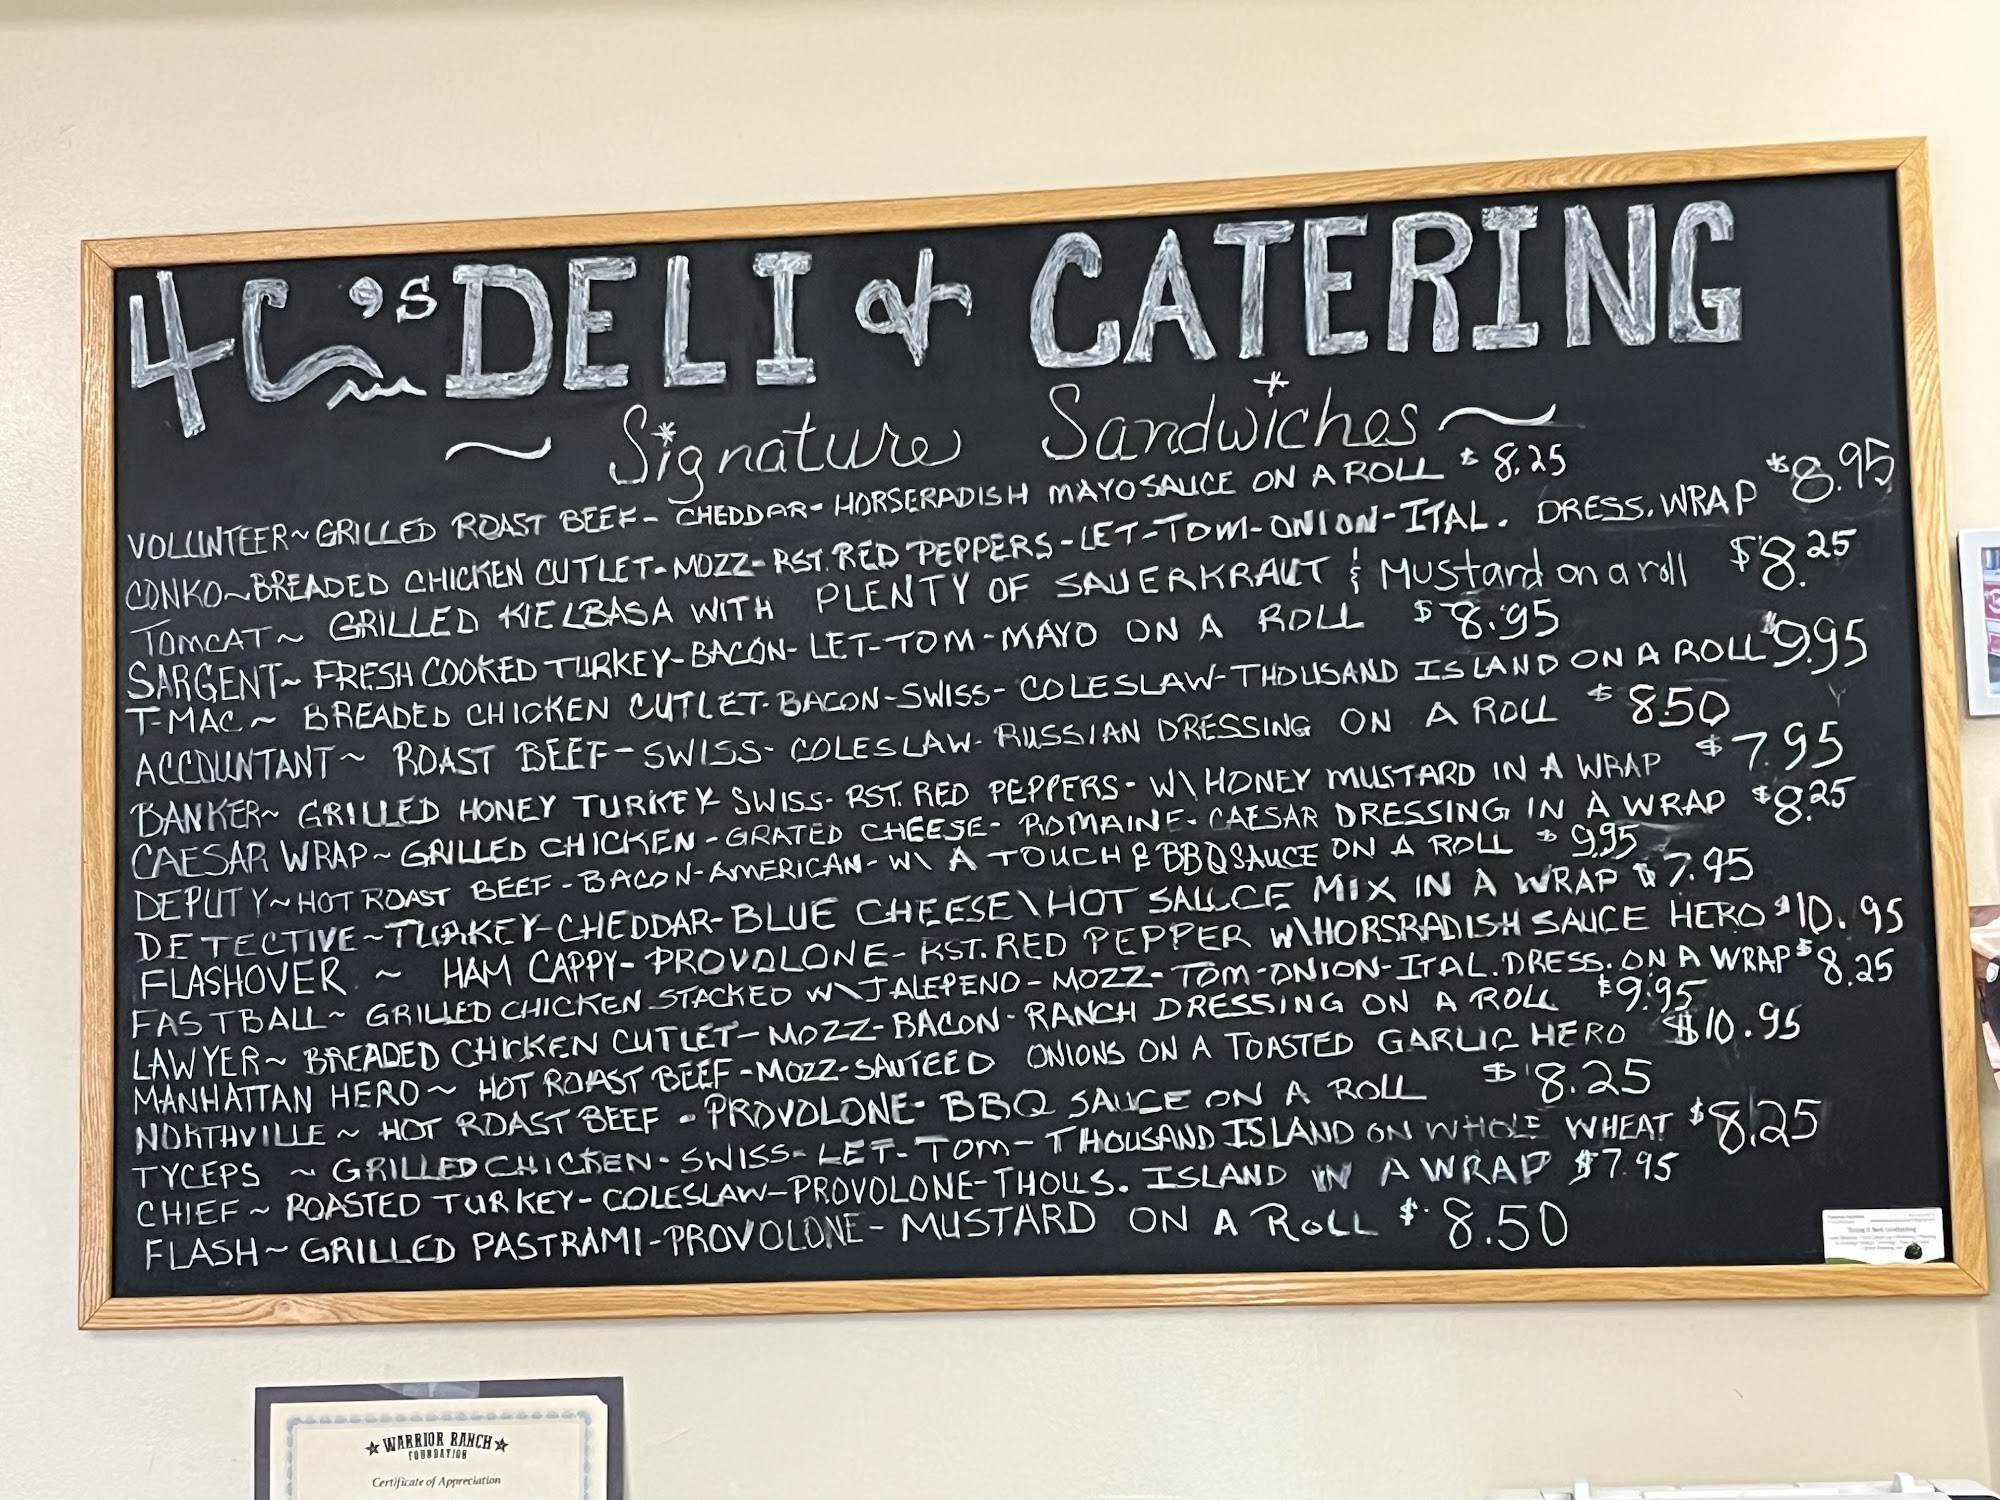 4C's DELI & CATERING
~ Signature Sandwiches ~
VOLUNTEER~GRILLED ROAST BEEF- CHEDDAR- HORSERADISH MAYO SAUCE ON A ROLL $8.25
CONKO~BREADED CHICKEN CUTLET-MOZZ-RST. RED PEPPERS-LET-TOM-ONION-ITAL. DRESS. WRAP $8.95
TOMCAT~ GRILLED KIELBASA WITH PLENTY OF SAUERKRAUT & Mustard on a roll $8.25
SARGENT~ FRESH COOKED TURKEY-BACON-LET-TOM-MAYO ON A ROLL $8.95
T-MAC~ BREADED CHICKEN CUTLET-BACON-SWISS-COLESLAW-THOUSAND ISLAND ON A ROLL $9.95
ACCOUNTANT~ ROAST BEEF-SWISS-COLESLAW-RUSSIAN DRESSING ON A ROLL $8.50
BANKER~ GRILLED HONEY TURKEY-SWISS-RST. RED PEPPERS-W\HONEY MUSTARD IN A WRAP $7.95
CAESAR WRAP~GRILLED CHICKEN-GRATED CHEESE-ROMAINE-CAESAR DRESSING IN A WRAP $8.25
DEPUTY~HOT ROAST BEEF-BACON-AMERICAN-W\ A TOUCH BBQ SAUCE ON A ROLL $9.95
DETECTIVE~TURKEY-CHEDDAR-BLUE CHEESE\HOT SAUCE MIX IN A WRAP $7.95
FLASHOVER ~ HAM CAPPY-PROVOLONE-RST. RED PEPPER W\HORSRADISH SAUCE HERO $10.95
FASTBALL~ GRILLED CHICKEN STACKED W\JALEPENO-MOZZ-TOM-ONION-ITAL. DRESS. ON A WRAP $8.25
LAWYER~ BREADED CHICKEN CUTLET-MOZZ-BACON-RANCH DRESSING ON A ROLL $9.95
MANHATTAN HERO~ HOT ROAST BEEF-MOZZ-SAUTEED ONIONS ON A TOASTED GARLIC HERO $10.95
NORTHVILLE~ HOT ROAST BEEF-PROVOLONE-BBQ SAUCE ON A ROLL $8.25
TYCEPS ~ GRILLED CHICKEN-SWISS-LET-TOM-THOUSAND ISLAND ON WHOLE WHEAT $8.25
CHIEF~ ROASTED TURKEY-COLESLAW-PROVOLONE-THOUS. ISLAND IN A WRAP $7.95
FLASH~GRILLED PASTRAMI-PROVOLONE-MUSTARD ON A ROLL $8.50
WARRIOR RANCH
FOUNDATION
Certificate of Appreciation